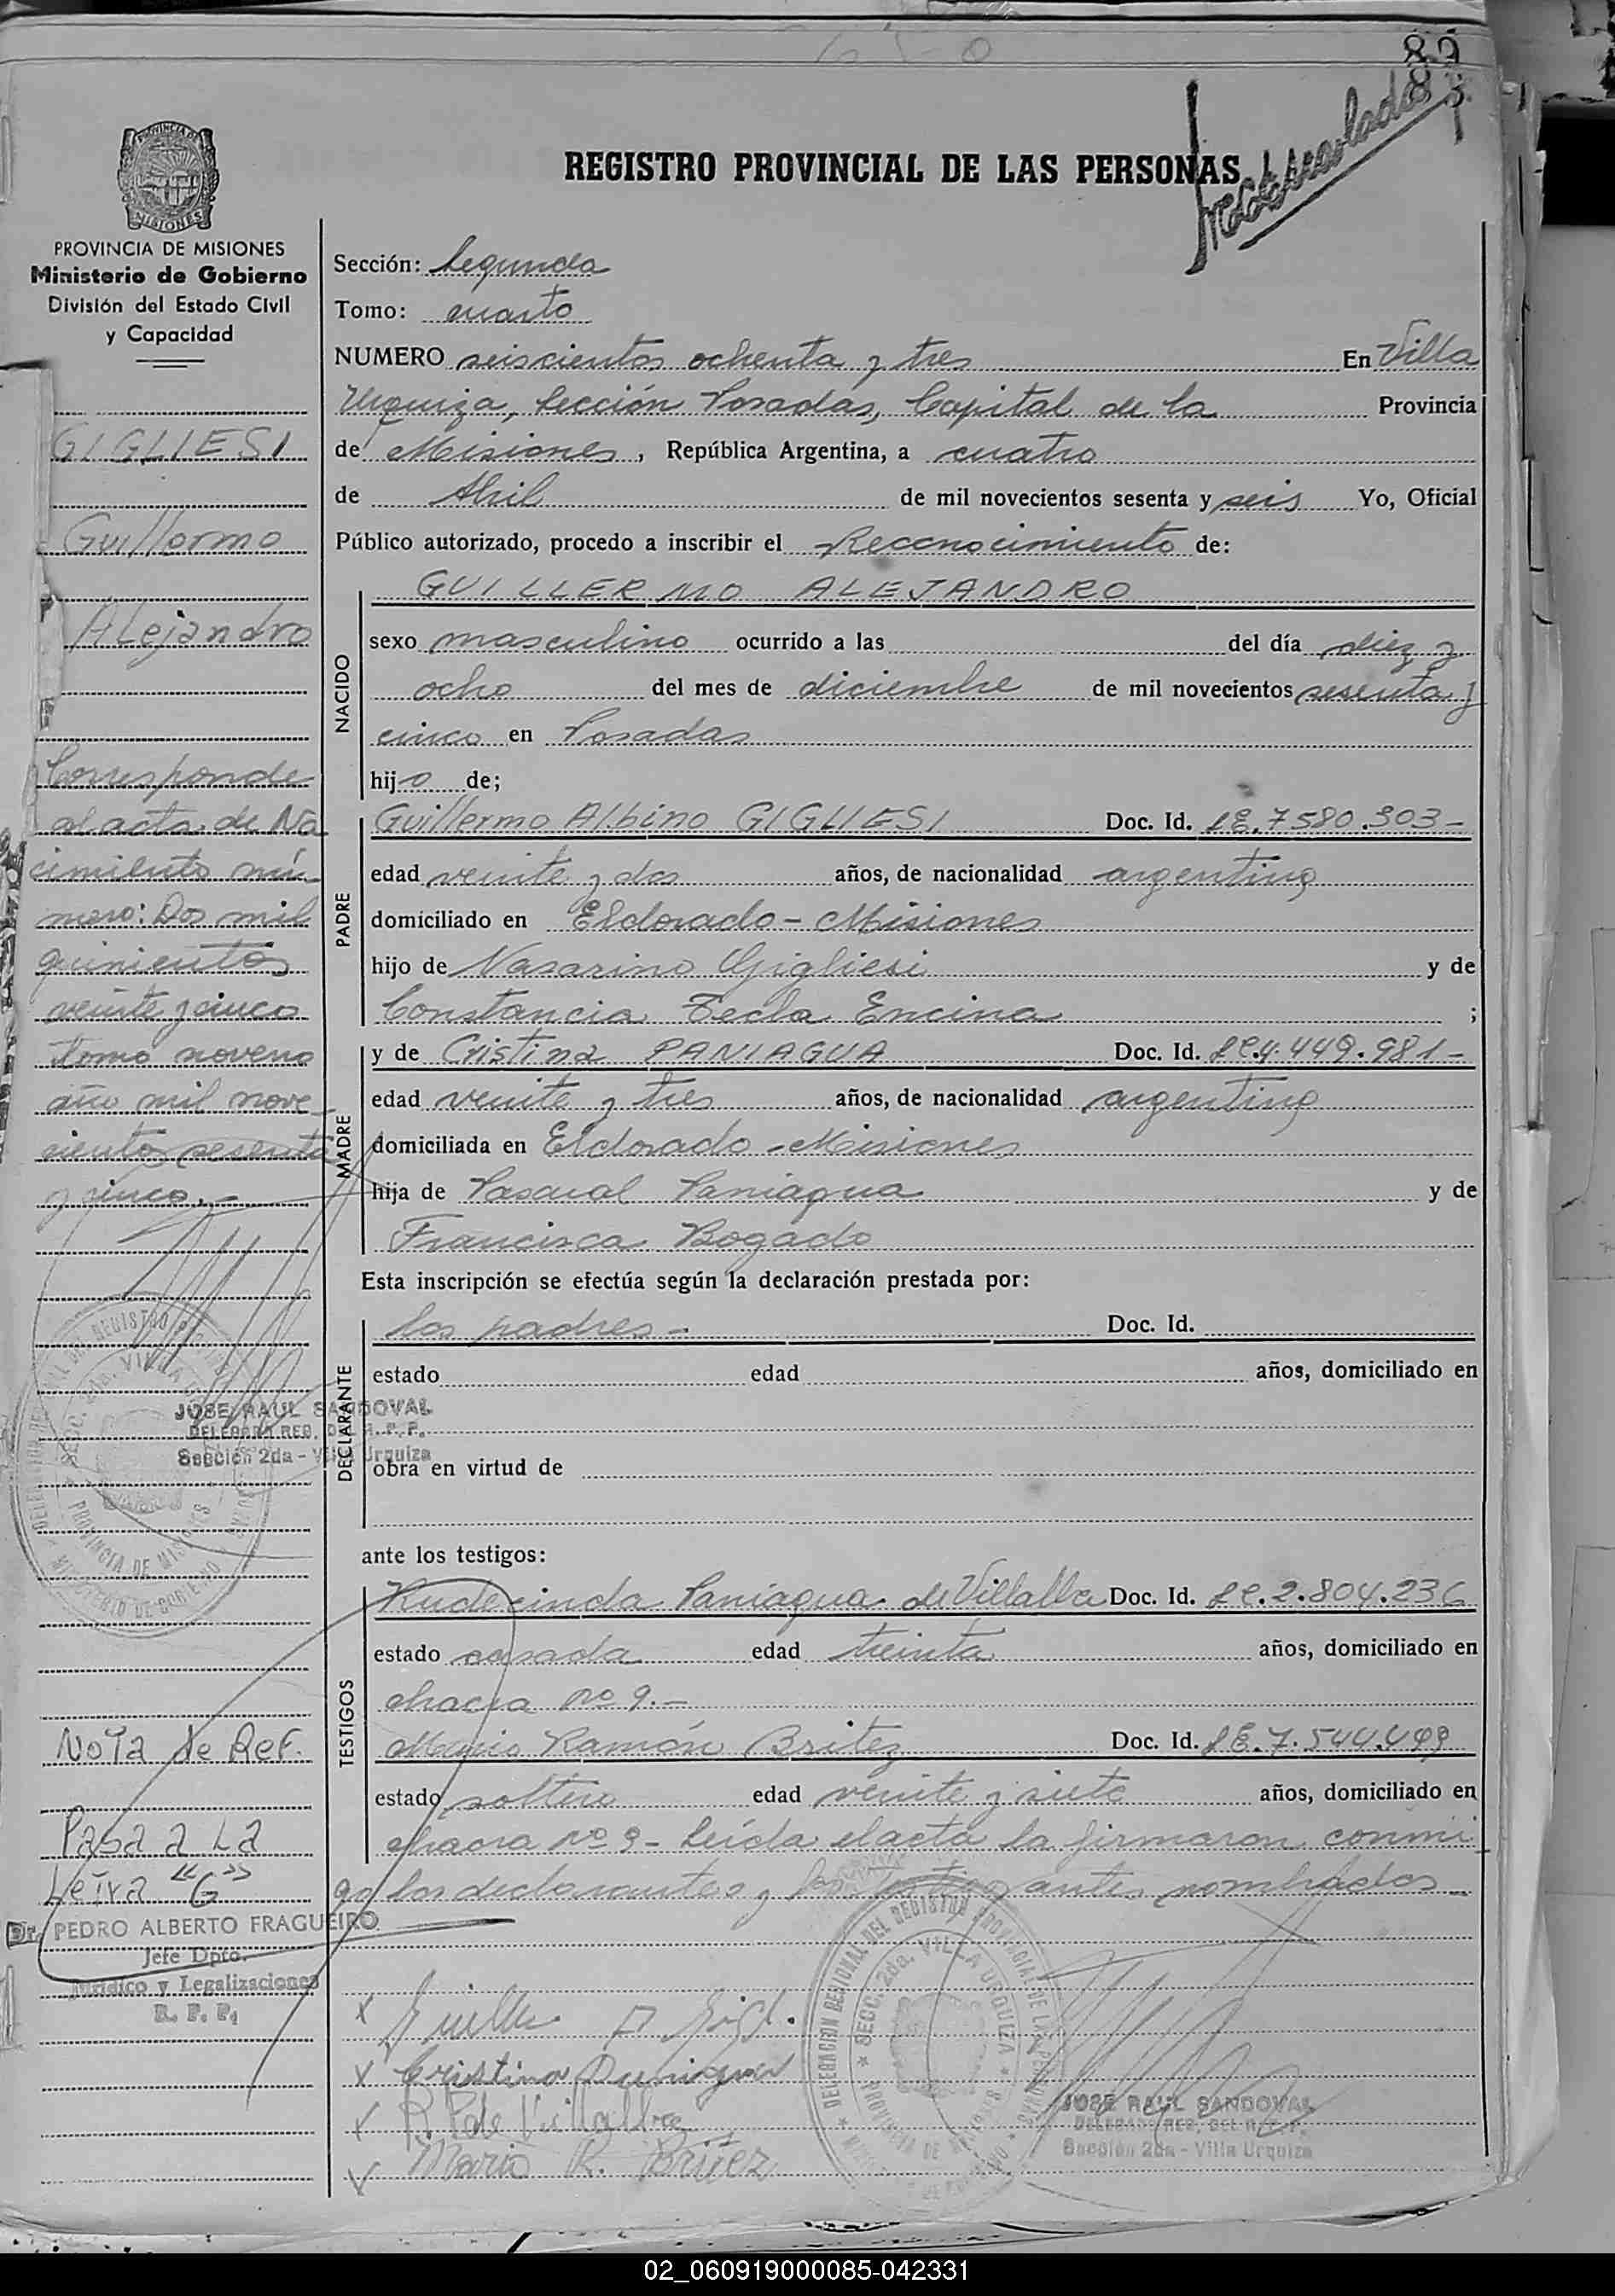 89
REGISTRO PROVINCIAL DE LAS PERSONAS
PROVINCIA DE MISIONES
Ministerio de Gobierno
División del Estado Civil
y Capacidad
GIGLIESI
Guillermo
Alejandro
Corresponde
al acta de Na
cimiento nú-
mero: Dos mil
quinientos
veinte y cinco
tomo noveno
año mil nove-
cientos sesenta
y cinco.-
JOSE RAUL SANDOVAL
Sección 2da - Villa Urquiza
Nota de Ref.
Pasa a La
Letra "G"
Dr. PEDRO ALBERTO FRAGUEIRO
Jefe Dpto.
Jurídico y Legalizaciones
R. P. P.
Sección: Segunda
Tomo: cuarto
NUMERO seiscientos ochenta y tres En Villa
Urquiza, Sección Posadas, Capital de la Provincia
de Misiones, República Argentina, a cuatro
de Abril de mil novecientos sesenta y seis Yo, Oficial
Público autorizado, procedo a inscribir el Reconocimiento de:
NACIDO
GUILLERMO ALEJANDRO
sexo masculino ocurrido a las del día diez y
ocho del mes de diciembre de mil novecientos sesenta y
cinco en Posadas
hijo de;
PADRE
Guillermo Albino GIGLIESI Doc. Id. LE.7580.303-
edad veinte y dos años, de nacionalidad argentina
domiciliado en Eldorado - Misiones
hijo de Nasarino Gigliesi y de
Constancia Tecla Encina ;
MADRE
y de Cristina PANIAGUA Doc. Id. LC.4.449.981-
edad veinte y tres años, de nacionalidad argentina
domiciliada en Eldorado - Misiones
hija de Pascual Paniagua y de
Francisca Bogado
Esta inscripción se efectúa según la declaración prestada por:
DECLARANTE
los padres - Doc. Id.
estado edad años, domiciliado en
obra en virtud de
ante los testigos:
TESTIGOS
Rudecinda Paniagua de Villalba Doc. Id. LC.2.804.236
estado casada edad treinta años, domiciliado en
chacra nº 9.-
Mario Ramón Britez Doc. Id. LE.7.544.499
estado soltero edad veinte y siete años, domiciliado en
chacra nº 9 - Leída el acta la firmaron conmi
go los declarantes y los testigos antes nombrados
Cristina Paniagua
R P de Villalba
Mario R. Britez
DELEGACION REGIONAL DEL REGISTRO PROVINCIAL DE LAS PERSONAS
SECC. 2da. VILLA URQUIZA
PROVINCIA DE MISIONES
JOSE RAUL SANDOVAL
DELEGADO REG. DEL R.P.P.
Sección 2da - Villa Urquiza
02_060919000085-042331